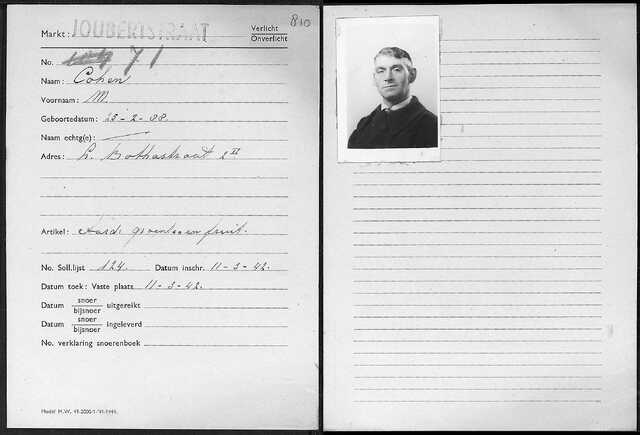 810
Markt: JOUBERTSTRAAT Verlicht
Onverlicht
No. 71
Naam: Cohen
Voornaam: M.
Geboortedatum: 23-2-88.
Naam echtg(e):
Adres: L. Bothastraat 2 II
Artikel: Aard. groenten en fruit.
No. Soll.lijst 124. Datum inschr. 11-3-42.
Datum toek: Vaste plaats 11-3-42.
Datum snoer
bijsnoer uitgereikt
Datum snoer
bijsnoer ingeleverd
No. verklaring snoerenboek
Model M.W.